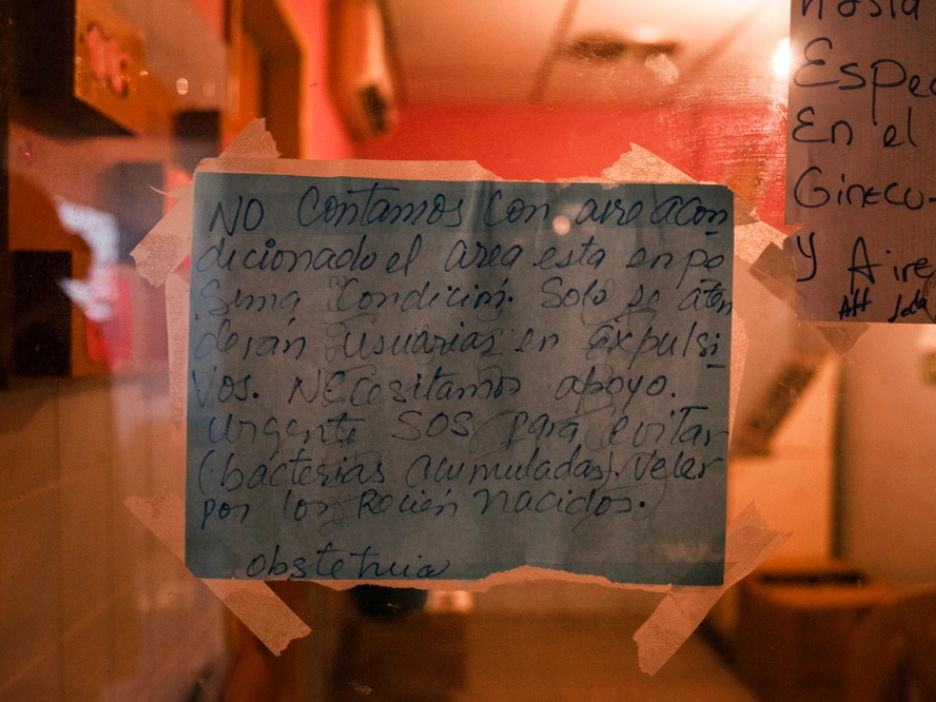 NO Contamos con aire acon
dicionado el area esta en pe
sima condición. Solo se aten
derán usuarias en expulsi
vos. NECesitamos apoyo.
urgente SOS para evitar
(bacterias acumuladas). Velar
por los Recién nacidos.
obstetricia
hasta
Espec
En el
Gineco-
y Aire
Att